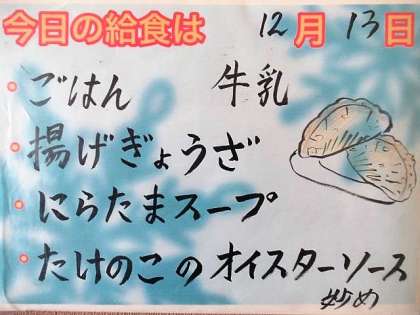 今日の給食は 12月13日
・ごはん 牛乳
・揚げぎょうざ
・にらたまスープ
・たけのこのオイスターソース
炒め